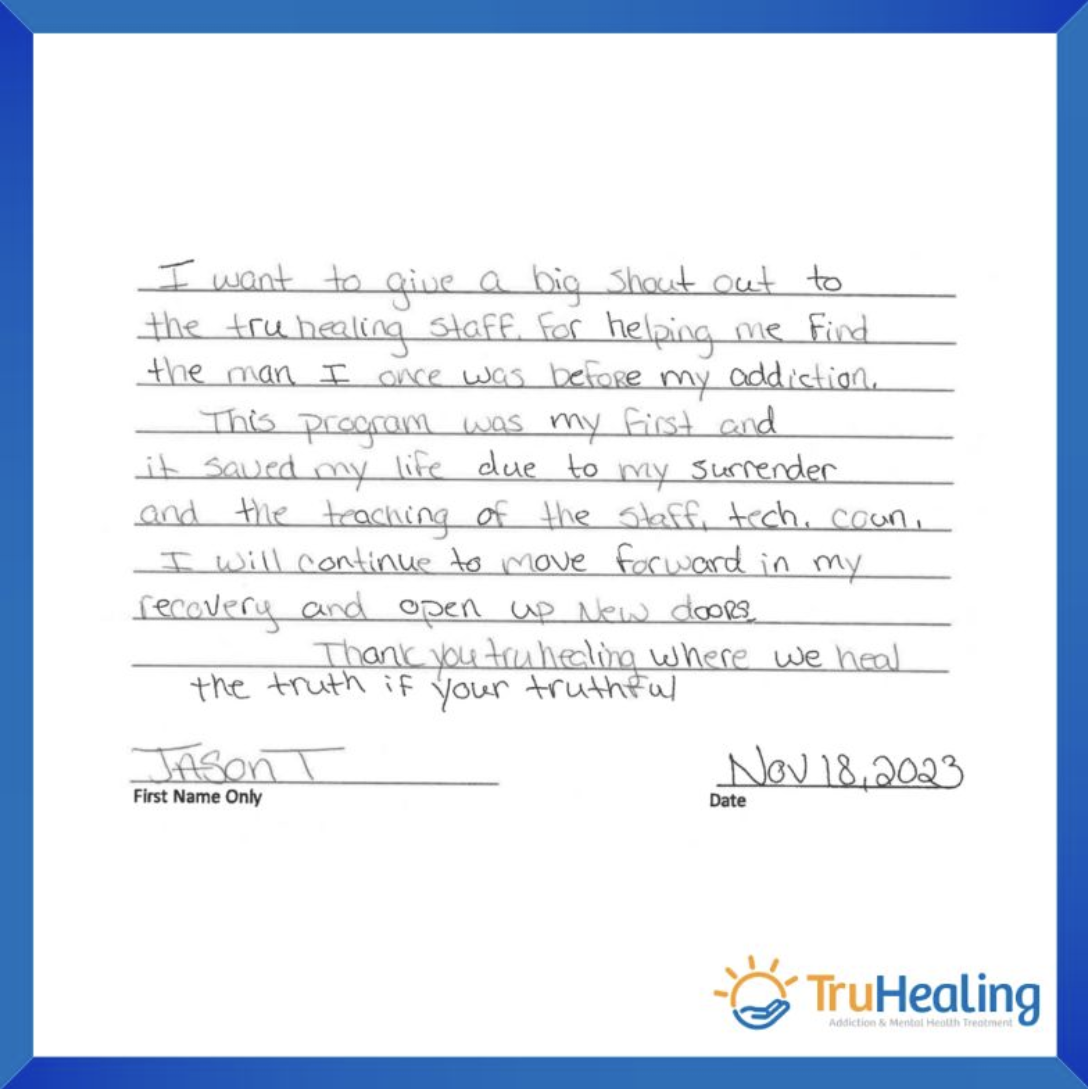 I want to give a big shout out to
the tru healing staff. For helping me find
the man I once was before my addiction.
This program was my first and
it saved my life due to my surrender
and the teaching of the staff, tech. coun.
I will continue to move forward in my
recovery and open up New doors
Thank you tru healing where we heal
the truth if your truthful
JASON T
Nov 18, 2023
First Name Only
Date
TruHealing
Addiction & Mental Health Treatment